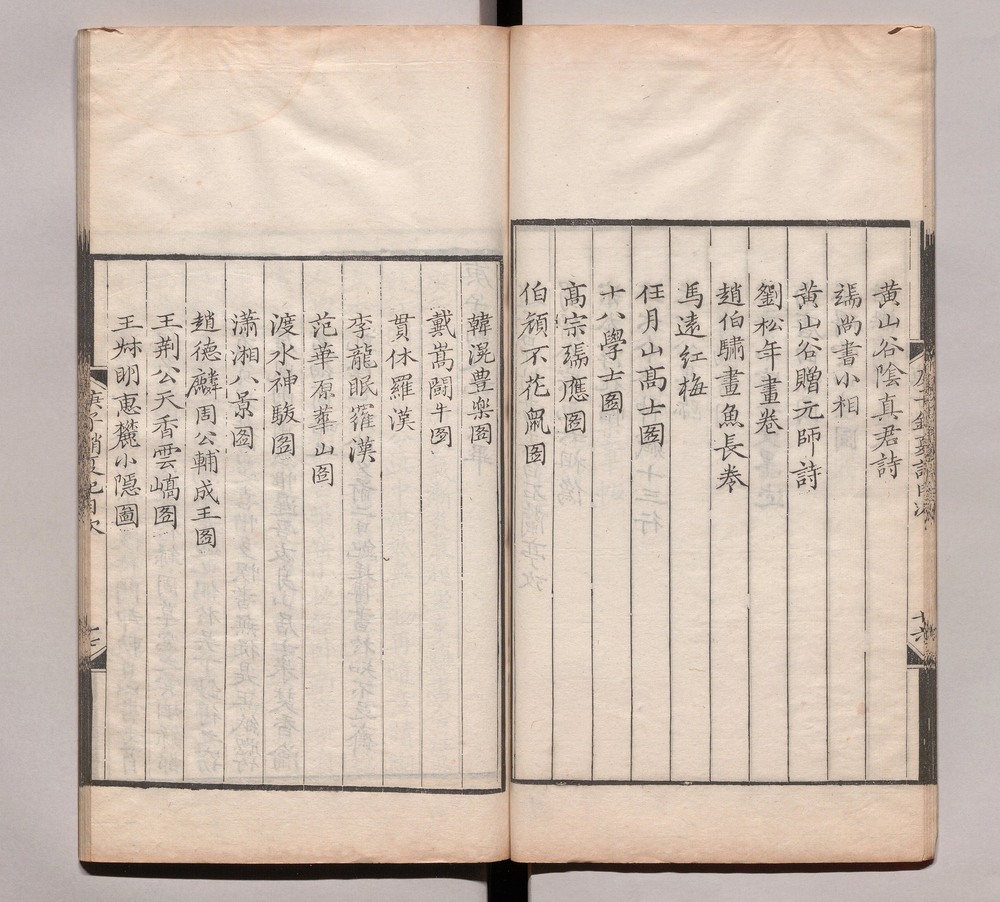 黄山谷陰真君詩
端尚書小相
黄山谷贈元師詩
劉松年畫卷
趙伯驌畫魚長卷
馬遠紅梅
任月山髙士圖
十八學士圖
髙宗瑞應圖
伯頎不花鼠圖
韓滉豊樂圖
戴嵩鬭牛圖
貫休羅漢
李龍眠羅漢
范華原華山圖
渡水神駿圖
瀟湘八景圖
趙德麟周公輔成王圖
王荆公天香雲嶠圖
王叔明惠麓小隠圖